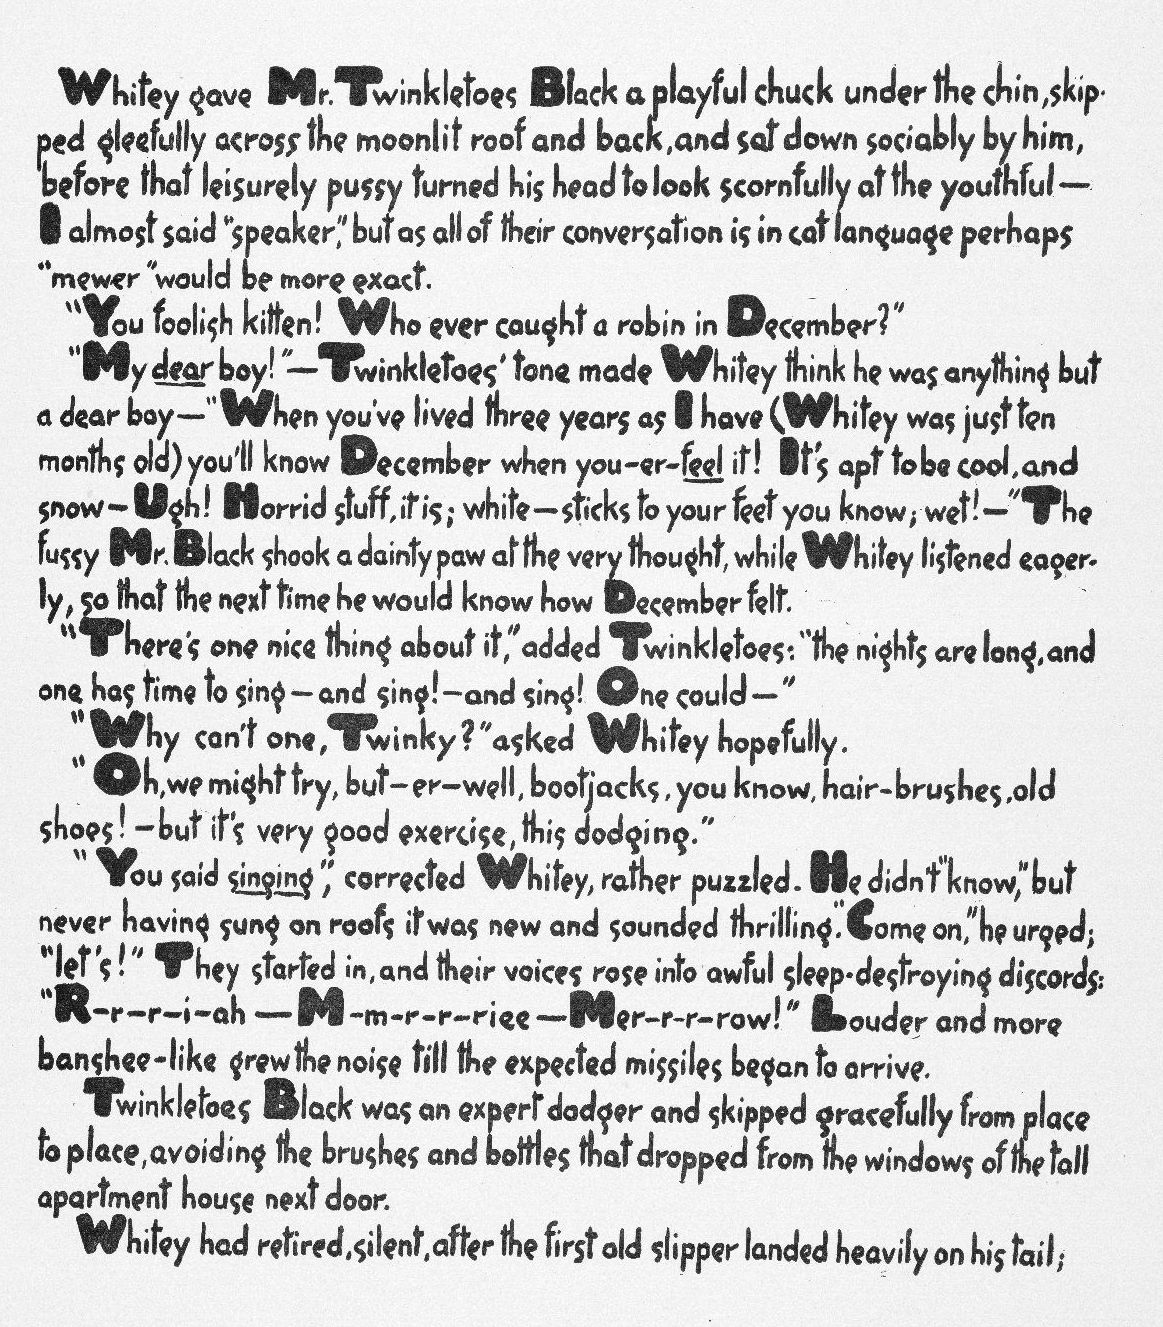 Whitey gave Mr. Twinkletoes Black a playful chuck under the chin, skip-
ped gleefully across the moonlit roof and back, and sat down sociably by him,
before that leisurely pussy turned his head to look scornfully at the youthful—
I almost said "speaker," but as all of their conversation is in cat language perhaps
"mewer" would be more exact.
"You foolish kitten! Who ever caught a robin in December?"
"My dear boy!"—Twinkletoes' tone made Whitey think he was anything but
a dear boy—"When you've lived three years as I have (Whitey was just ten
months old) you'll know December when you-er-feel it! It's apt to be cool, and
snow—Ugh! Horrid stuff, it is; white—sticks to your feet you know; wet!—" The
fussy Mr. Black shook a dainty paw at the very thought, while Whitey listened eager-
ly, so that the next time he would know how December felt.
"There's one nice thing about it," added Twinkletoes: "the nights are long, and
one has time to sing—and sing!—and sing! One could—"
"Why can't one, Twinky?" asked Whitey hopefully.
"Oh, we might try, but-er-well, bootjacks, you know, hair-brushes, old
shoes!—but it's very good exercise, this dodging."
"You said singing", corrected Whitey, rather puzzled. He didn't "know," but
never having sung on roofs it was new and sounded thrilling. "Come on," he urged;
"let's!" They started in, and their voices rose into awful sleep-destroying discords:
"R-r-r-i-ah—M-m-r-r-riee—Mer-r-r-row!" Louder and more
banshee-like grew the noise till the expected missiles began to arrive.
Twinkletoes Black was an expert dodger and skipped gracefully from place
to place, avoiding the brushes and bottles that dropped from the windows of the tall
apartment house next door.
Whitey had retired, silent, after the first old slipper landed heavily on his tail;